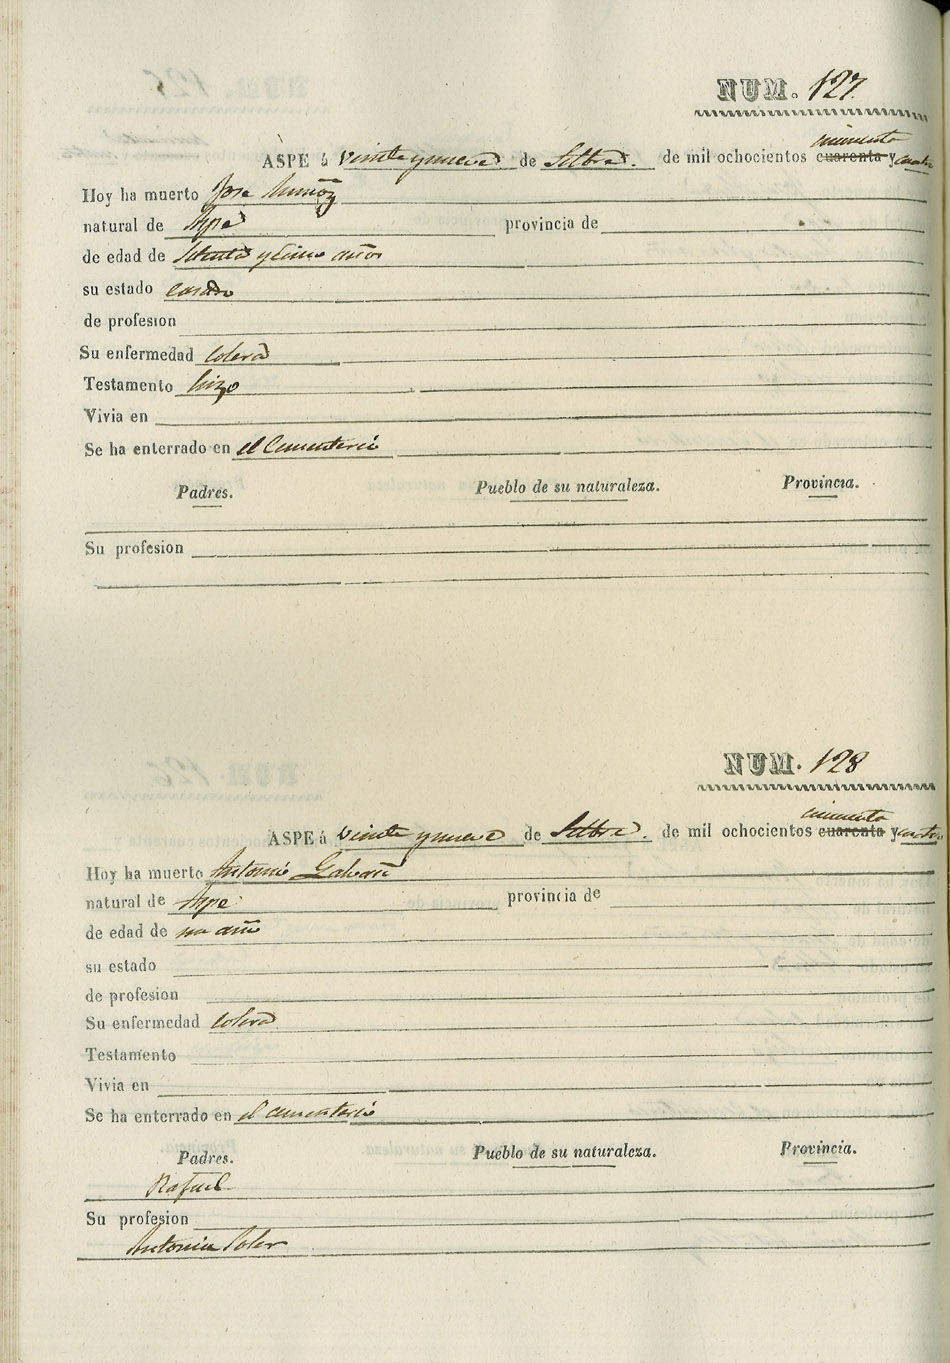 NUM. 127.
cincuenta
ASPE á veinte y nueve de Setbre. de mil ochocientos cuarenta y cuatro
Hoy ha muerto Jose Muñoz
natural de Aspe provincia de
de edad de setenta y cinco años
su estado casado
de profesion
Su enfermedad colera
Testamento hizo
Vivia en
Se ha enterrado en el Cementerio
Padres. Pueblo de su naturaleza. Provincia.
Su profesion
NUM. 128
cincuenta
ASPE á veinte y nueve de Setbre. de mil ochocientos cuarenta y cuatro
Hoy ha muerto Antonio Galvañ
natural de Aspe provincia de
de edad de un año
su estado
de profesion
Su enfermedad colera
Testamento
Vivia en
Se ha enterrado en el cementerio
Padres. Pueblo de su naturaleza. Provincia.
Rafael
Su profesion
Antonia Soler